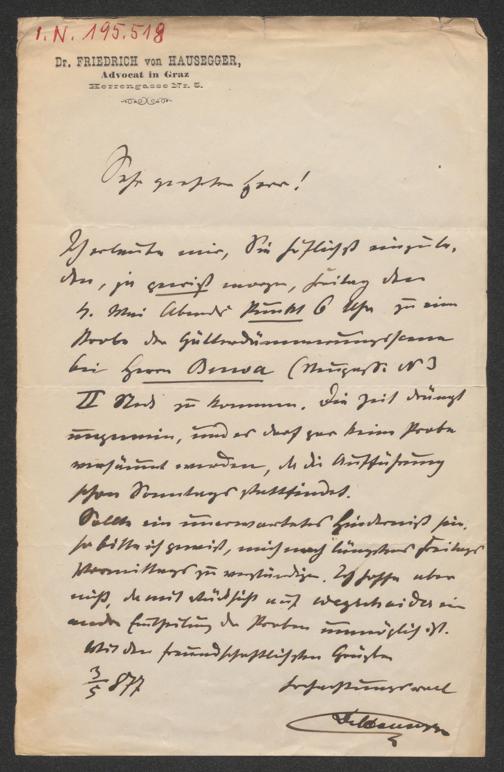 I. N. 195.518
Dr. FRIEDRICH von HAUSEGGER,
Advocat in Graz
Herrengasse Nr. 5.
Sehr geehrter Herr!
Ich erlaube mir, Sie höflichst einzula-
den, ja gewiß morgen, Freitag den
4. Mai Abends Punkt 6 Uhr zu einer
Probe der Götterdämmerungsscene
bei Herrn Buwa (Neugasse N 3
II Stock zu kommen. Die Zeit drängt
ungemein, und es darf gar keine Probe
versäumt werden, da die Aufführung
schon Sonntags stattfindet.
Sollte ein unerwartetes Hinderniß sein,
so bitte ich gewiß, mich noch längstens Freitags
Vormittags zu verständigen. Ich hoffe aber
nicht, da mit Rücksicht auf eine
andere Eintheilung der Proben unmöglich ist.
Mit den freundschaftlichsten Grüßen
3/5 877 hochachtungsvoll
Dr Hausegger